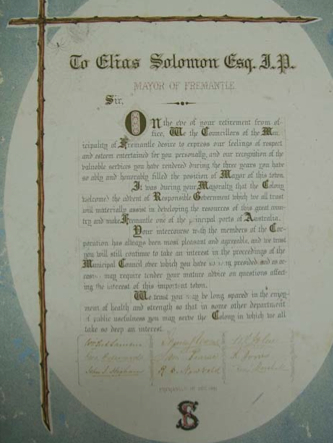 To Elias Solomon Esq. J.P.
MAYOR OF FREMANTLE
Sir,
On the eve of your retirement from of-
fice, We the Councillors of the Mu-
nicipality of Fremantle desire to express our feelings of respect
and esteem entertained for you personally, and our recognition of the
valuable services you have rendered during the three years you have
so ably and honorably filled the position of Mayor of this town.
It was during your Mayoralty that the Colony
welcomed the advent of Responsible Government which we all trust
will materially assist in developing the resources of this great coun-
try and make Fremantle one of the principal ports of Australia.
Your intercourse with the members of the Cor-
poration has always been most pleasant and agreeable, and we trust
you will still continue to take an interest in the proceedings of the
Municipal Council over which you have presided and as
may require your mature advice on questions affec-
ting the interest of this important town.
We trust you may be long spared in the enjoy-
ment of health and strength so that in some other department
of public usefulness you may serve the Colony in which we all
take so deep an interest.
S